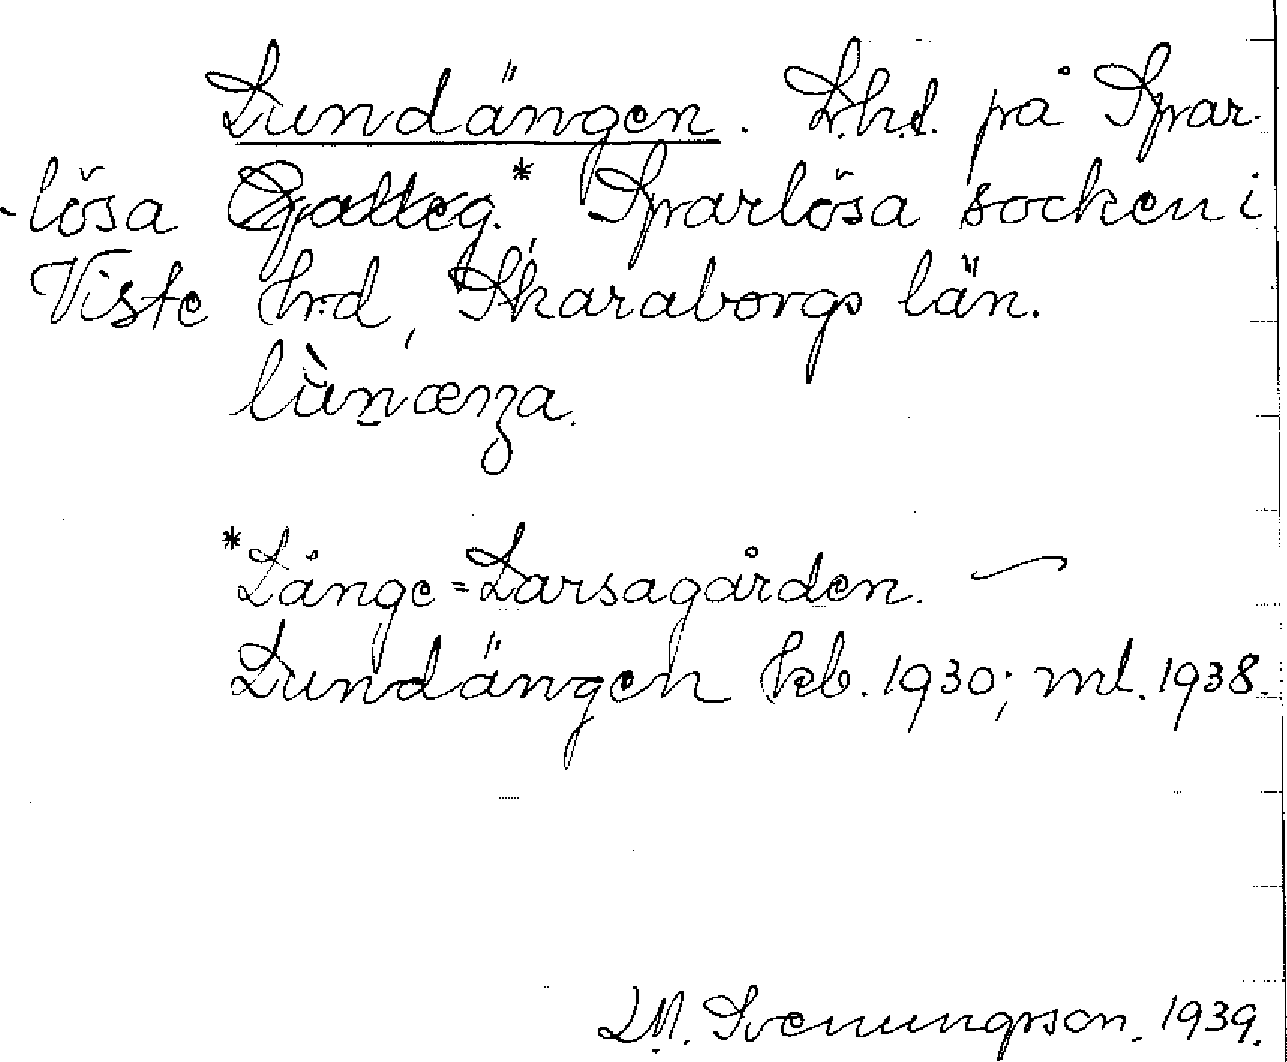 Lundängen. L.h.d. på Spar-
-lösa * Sparlösa socken i
Viste hrd, Skaraborgs län.
lùnænza.
*Långe=Larsagården. —
Lundängen kb. 1930; ml. 1938.
L.M. Svenungsson. 1939.